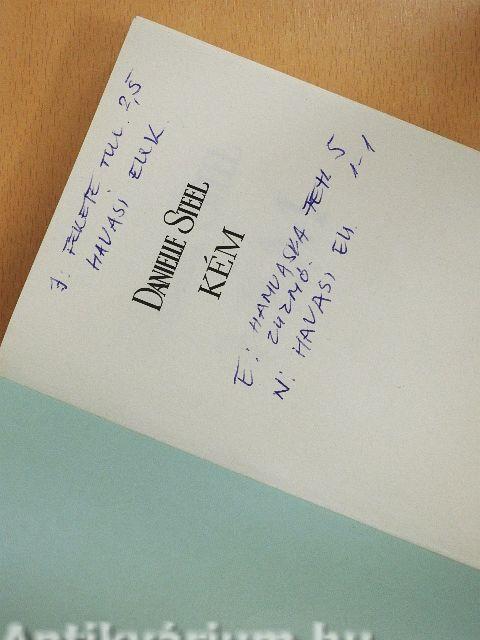 J: FEKETE TUL. 2,5
HAVASI ELLK
DANIELLE STEEL
KÉM
E: HAMVASKA TETL 5
ZUZMÓ. 1-1
N: HAVASI ELL
Antikvárium.hu